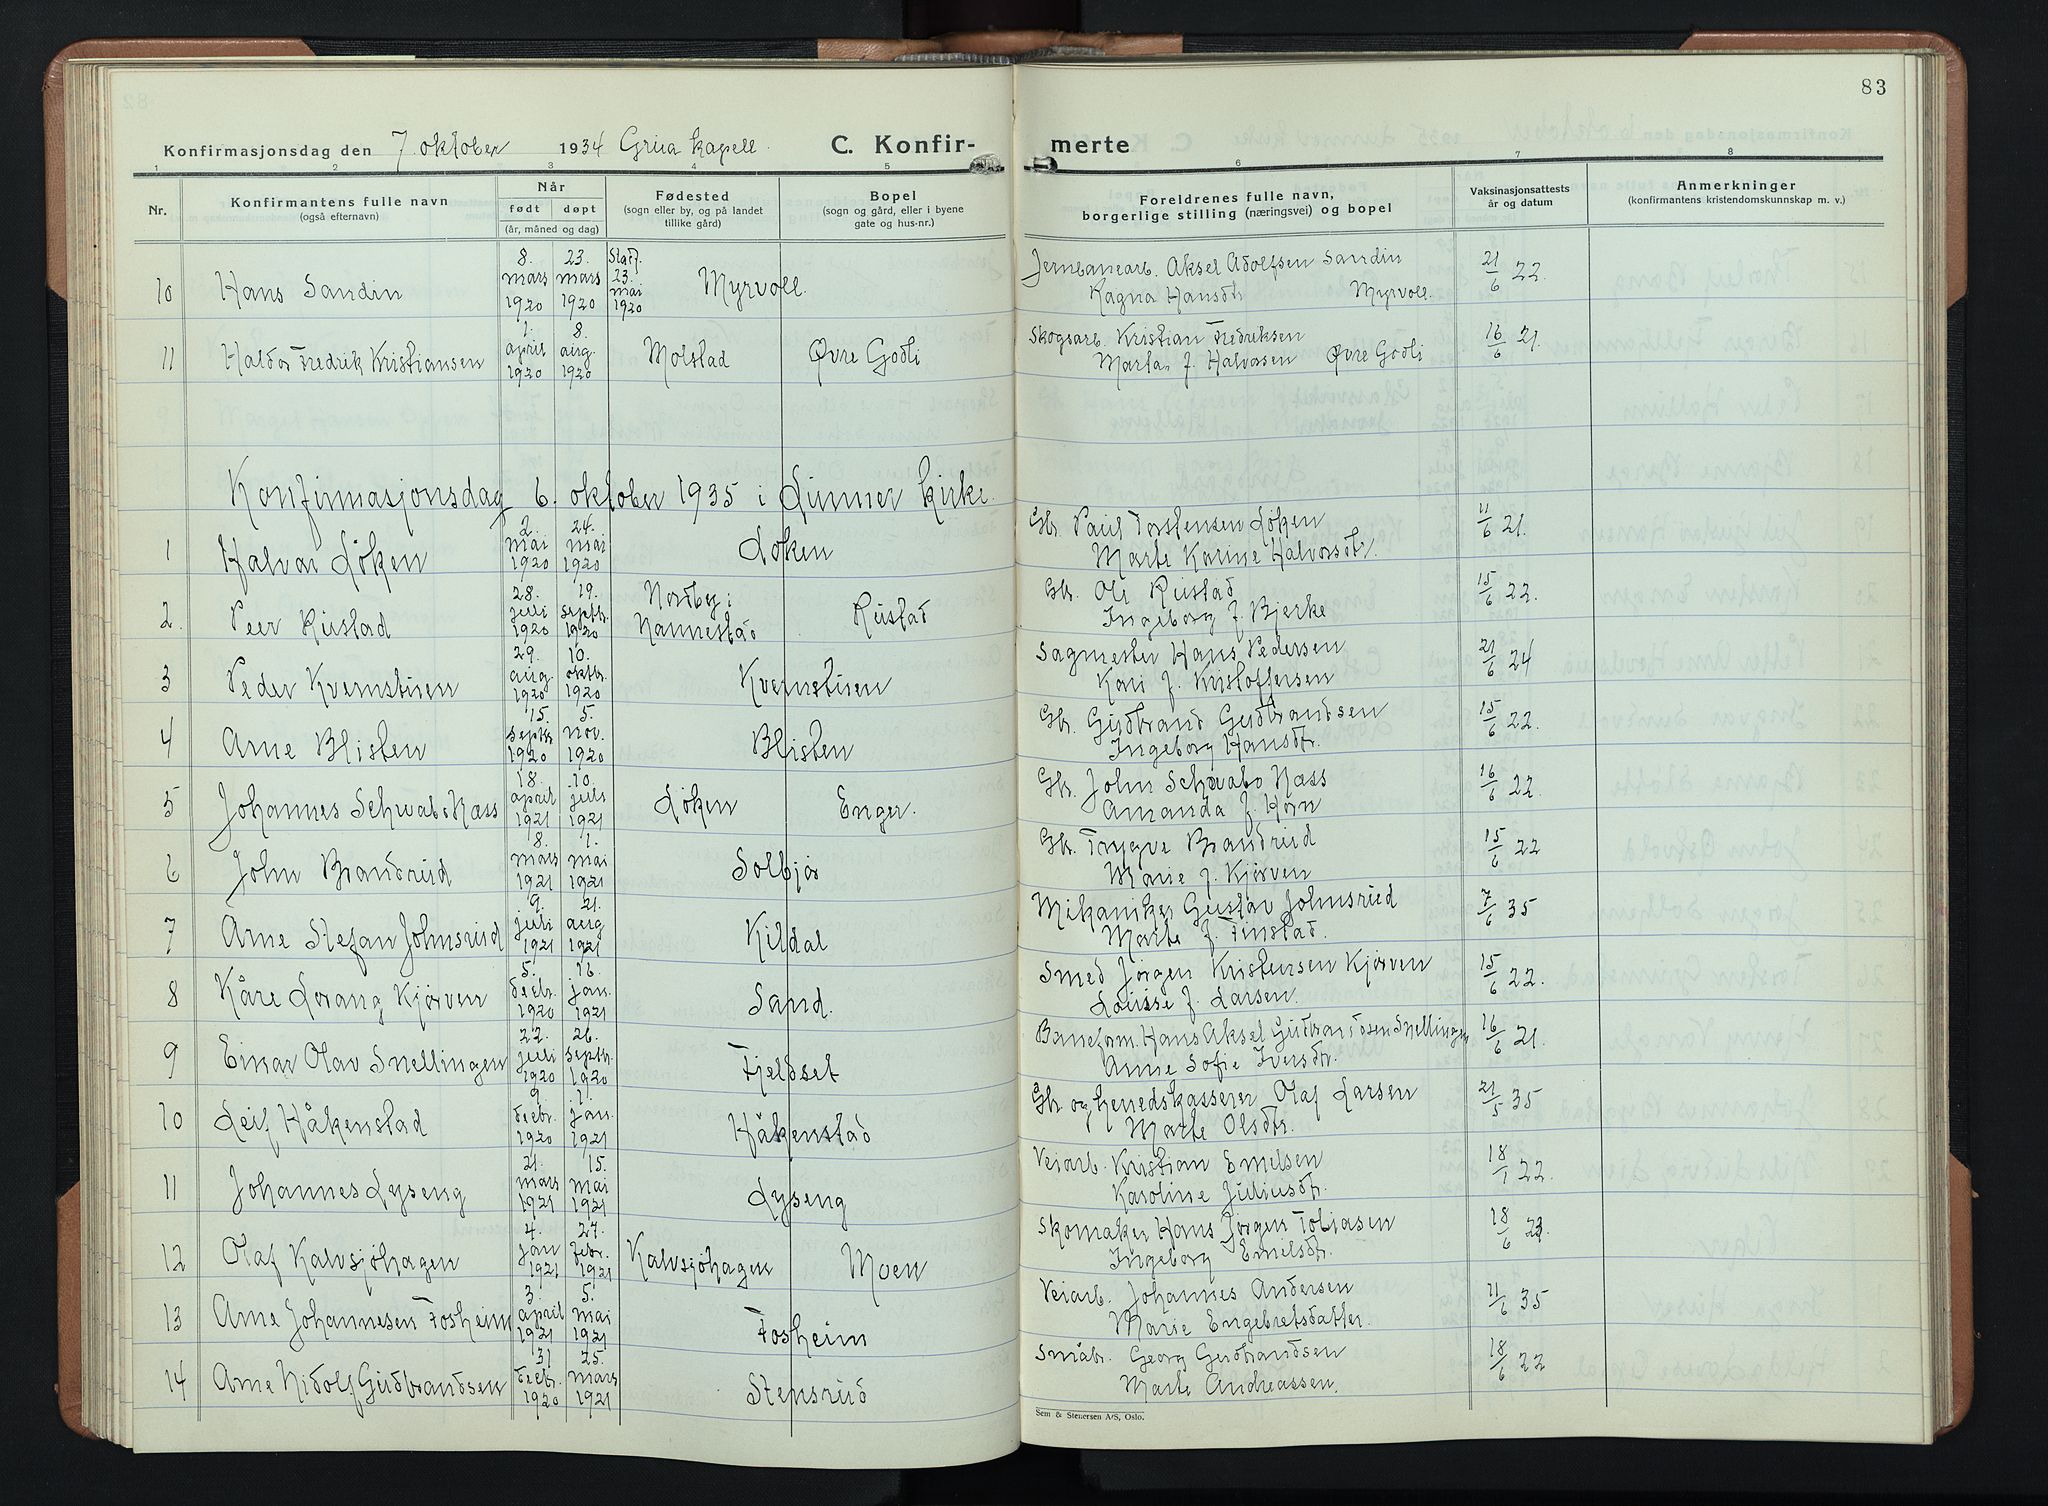 83
Konfirmasjonsdag den 7. oktober 1934 Grua kapell. C. Konfir- merte
1 2 3 4 5 6 7 8
Nr. Konfirmantens fulle navn (også efternavn) Når født døpt (år, måned og dag) Fødested (sogn eller by, og på landet tillike gård) Bopel (sogn og gård, eller i byene gate og hus-nr.) Foreldrenes fulle navn, borgerlige stilling (næringsvei) og bopel Vaksinasjonsattests år og datum Anmerkninger (konfirmantens kristendomskunnskap m. v.)
10 Hans Sandin 8. mars 1920 23. mars 1920 23. mai 1920 Myrvoll. Jernbanearb. Aksel Adolfsen Sandin
Ragna Hansdtr Myrvoll. 21/6 22.
11 Haldor Fredrik Kristiansen 1. april 1920 8. aug. 1920 Molstad Øvre Godli Skogsarb. Kristian Fredriksen
Marta f. Halvorsen Øvre Godli 16/6 21.
Konfirmasjonsdag 6. oktober 1935 i Lunner kirke.
1 Halvar Løken 2. mai 1920 24. mai 1920 Løken Gbr. Paul Torstensen Løken
Marte Karine Halvorsdtr. 11/6 21.
2. Peer Rustad 28. juli 1920 19. septbr. 1920 Nordby i Nannestad Rustad Gbr. Ole Rustad
Ingeborg f. Bjerke 15/6 22.
3 Peder Kvernstuen 29. aug. 1920 10. oktbr. 1920 Kvernstuen Sagmester Hans Pedersen
Kari f. Kristoffersen 21/6 24
4 Arne Blisten 15. septbr 1920 5. nov. 1920 Blisten Gbr. Gudbrand Gudbrandsen
Ingeborg Hansdtr. 15/6 22.
5 Johannes Schwabs Næss 18. april 1921 10. juli 1921 Løken Enger. Gbr. John Schwabs Næss
Amanda f. Horn 16/6 22.
6 John Brandrud 8. mars 1921 1. mai 1921 Solbjør Gbr. Trygve Brandrud
Marie f. Kjørven 15/6 22
7 Arne Stefan Johnsrud 9. juli 1921 21. aug 1921 Kildal Mikaniker Gustav Johnsrud
Marte f. Tinstad. 7/6 35
8 Kåre Lorang Kjørven 5. decbr. 1920 16. jan. 1921 Sand. Smed Jørgen Kristensen Kjørven
Louise f. Larsen. 15/6 22.
9 Einar Olav Snellingen 22. juli 1920 26. septbr. 1920 Fjeldset Baneform. Hans Aksel Gudbrandsen Snellingen
Anne Sofie Iversdtr. 16/6 21.
10 Leif Håkenstad 9. decbr. 1920 11. jan. 1921 Håkenstad Gbr og herredskasserer Olaf Larsen
Marte Olsdtr. 21/5 35
11 Johannes Lyseng 21. mars 1921 15. mai 1921 Lyseng Veiarb. Kristian Emilsen
Karoline Juliusdtr. 18/1 22.
12 Olaf Kalvsjøhagen 4. jan 1921 27. febr. 1921 Kalvsjøhagen Moen Skomaker Hans Jørgen Tobiasen
Ingeborg Emilsdtr. 18/6 23.
13 Arne Johannesen Fosheim 3. april 1921 5. mai 1921 Fosheim Veiarb. Johannes Andersen
Marie Engebretsdatter. 11/6 35
14 Arne Nidolf Gudbrandsen 31 decbr. 1920 25. mars 1921 Stensrud Småbr. Georg Gudbrandsen
Marte Andreassen. 18/6 22
Sem & Stenersen A/S, Oslo.